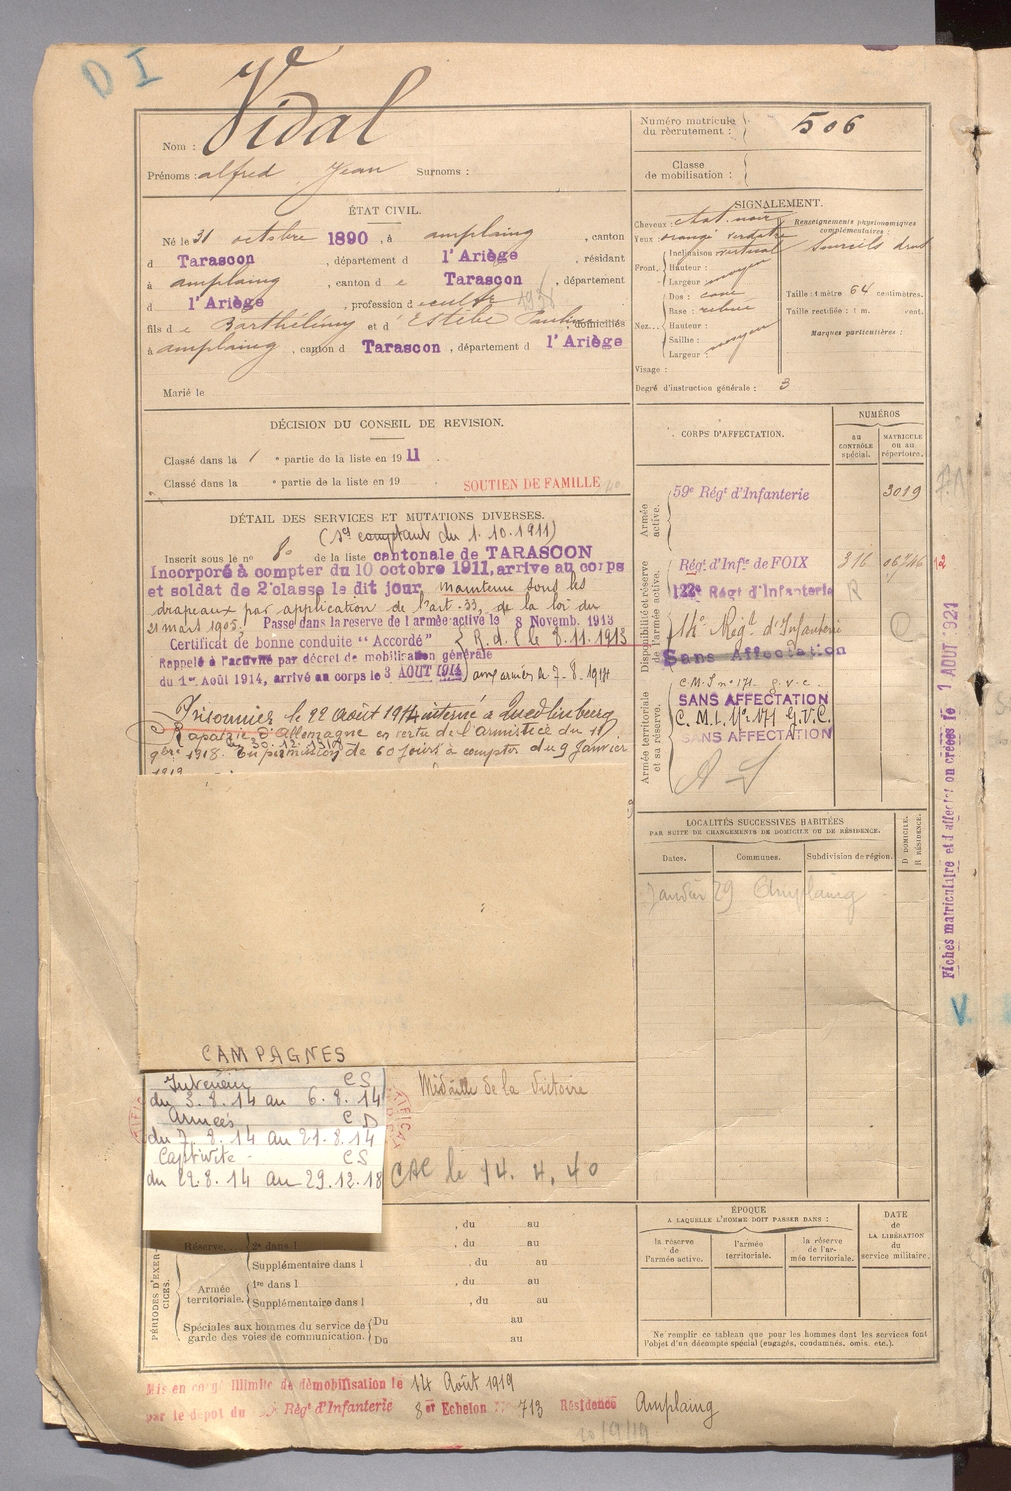 D I
Nom : Vidal
Prénoms : alfred Jean Surnoms :
Numéro matricule du recrutement : 506
Classe de mobilisation :
ÉTAT CIVIL.
Né le 31 octobre 1890, à amplaing, canton
d Tarascon, département d l'Ariège, résidant
à amplaing, canton d e Tarascon, département
d l'Ariège, profession d
fils d e Barthélémy et d' Estèbe, domiciliés
à amplaing, canton d Tarascon, département d l'Ariège
Marié le
SIGNALEMENT.
Cheveux : chat. noir
Yeux : orangé verdâtre
Front. Inclinaison vertical
Hauteur :
Largeur moyen
Nez... Dos : cave
Base : relevée
Hauteur :
Saillie : moyen
Largeur :
Visage :
Renseignements physionomiques complémentaires :
Sourcils droits
Taille : 1 mètre 64 centimètres.
Taille rectifiée : 1 m. cent.
Marques particulières :
Degré d'instruction générale : 3
DÉCISION DU CONSEIL DE REVISION.
Classé dans la 1 e partie de la liste en 1911.
Classé dans la e partie de la liste en 19
SOUTIEN DE FAMILLE
DÉTAIL DES SERVICES ET MUTATIONS DIVERSES.
(Sce comptant du 1.10.1911)
Inscrit sous le n° 80 de la liste cantonale de TARASCON
Incorporé à compter du 10 octobre 1911, arrive au corps
et soldat de 2e classe le dit jour maintenu sous les
drapeaux par application de l'art. 33, de la loi du
21 mart 1905. Passe dans la reserve de l'armée active le 8 Novemb. 1913
Certificat de bonne conduite "Accordé" R.d.l le 8.11.1913
Rappelé à l'activité par décret de mobilisation générale
du 1er Août 1914, arrivé au corps le 3 AOUT 1914) aux armées le 7.8.1914
Prisonnier le 22 août 1914 interné à Quedlinburg
Rapatrié d'Allemagne en vertu de l'armistice du 11
9bre 1918. le 30.12.1918 En permission de 60 jours à compter du 9 Janvier
1919
CORPS D'AFFECTATION.
NUMÉROS
au contrôle spécial.
matricule ou au répertoire.
Armée active.
59e Régt d'Infanterie 3019
Disponibilité et réserve de l'armée active.
Régt d'Infie de FOIX 316
122e Régt d'Infanterie R
14e Régt d'Infanterie
Sans Affectation
Armée territoriale et sa réserve.
C.M.I n° 171 g.v.c.
SANS AFFECTATION
C.M.I. N°. 171 G.V.C.
SANS AFFECTATION
A S
LOCALITÉS SUCCESSIVES HABITÉES
PAR SUITE DE CHANGEMENTS DE DOMICILE OU DE RÉSIDENCE.
Dates. Communes. Subdivision de région. D DOMICILE. R RÉSIDENCE.
Janvier 29 Amplaing
Fiches matriculaire et d'affectation créées le 1 AOUT 1921
V.
CAMPAGNES
Intérieur CS
du 3.8.14 au 6.8.14
Armées CD
du 7.8.14 au 21.8.14
Captivité - CS
du 22.8.14 au 29.12.18
Médaille de la Victoire
CAC le 14.4.40
PÉRIODES D'EXERCICES.
, du au
Réserve. 2e dans l , du au
Supplémentaire dans l , du au
Armée territoriale. 1re dans l , du au
Supplémentaire dans l , du au
Spéciales aux hommes du service de garde des voies de communication. Du au
Du au
ÉPOQUE
A LAQUELLE L'HOMME DOIT PASSER DANS :
la réserve de l'armée active.
l'armée territoriale.
la réserve de l'armée territoriale.
DATE de LA LIBÉRATION du service militaire.
Ne remplir ce tableau que pour les hommes dont les services font
l'objet d'un décompte spécial (engagés, condamnés, omis, etc.).
Mis en congé illimité de démobilisation le 14 Août 1919
par le dépot du Régt d'Infanterie 8 er Echelon N° 713 Résidence Amplaing
20/9/19